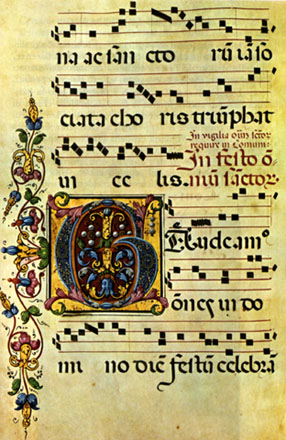 na ac san cto rũ iã so
ciata cho ris triũphat
In vigilia oĩm sctor̃
require in Comuni
In festo õ
in ce lis. niũ sanctor.
Gaudeamꝰ
õnes in do
mi no diẽ festũ celebrã